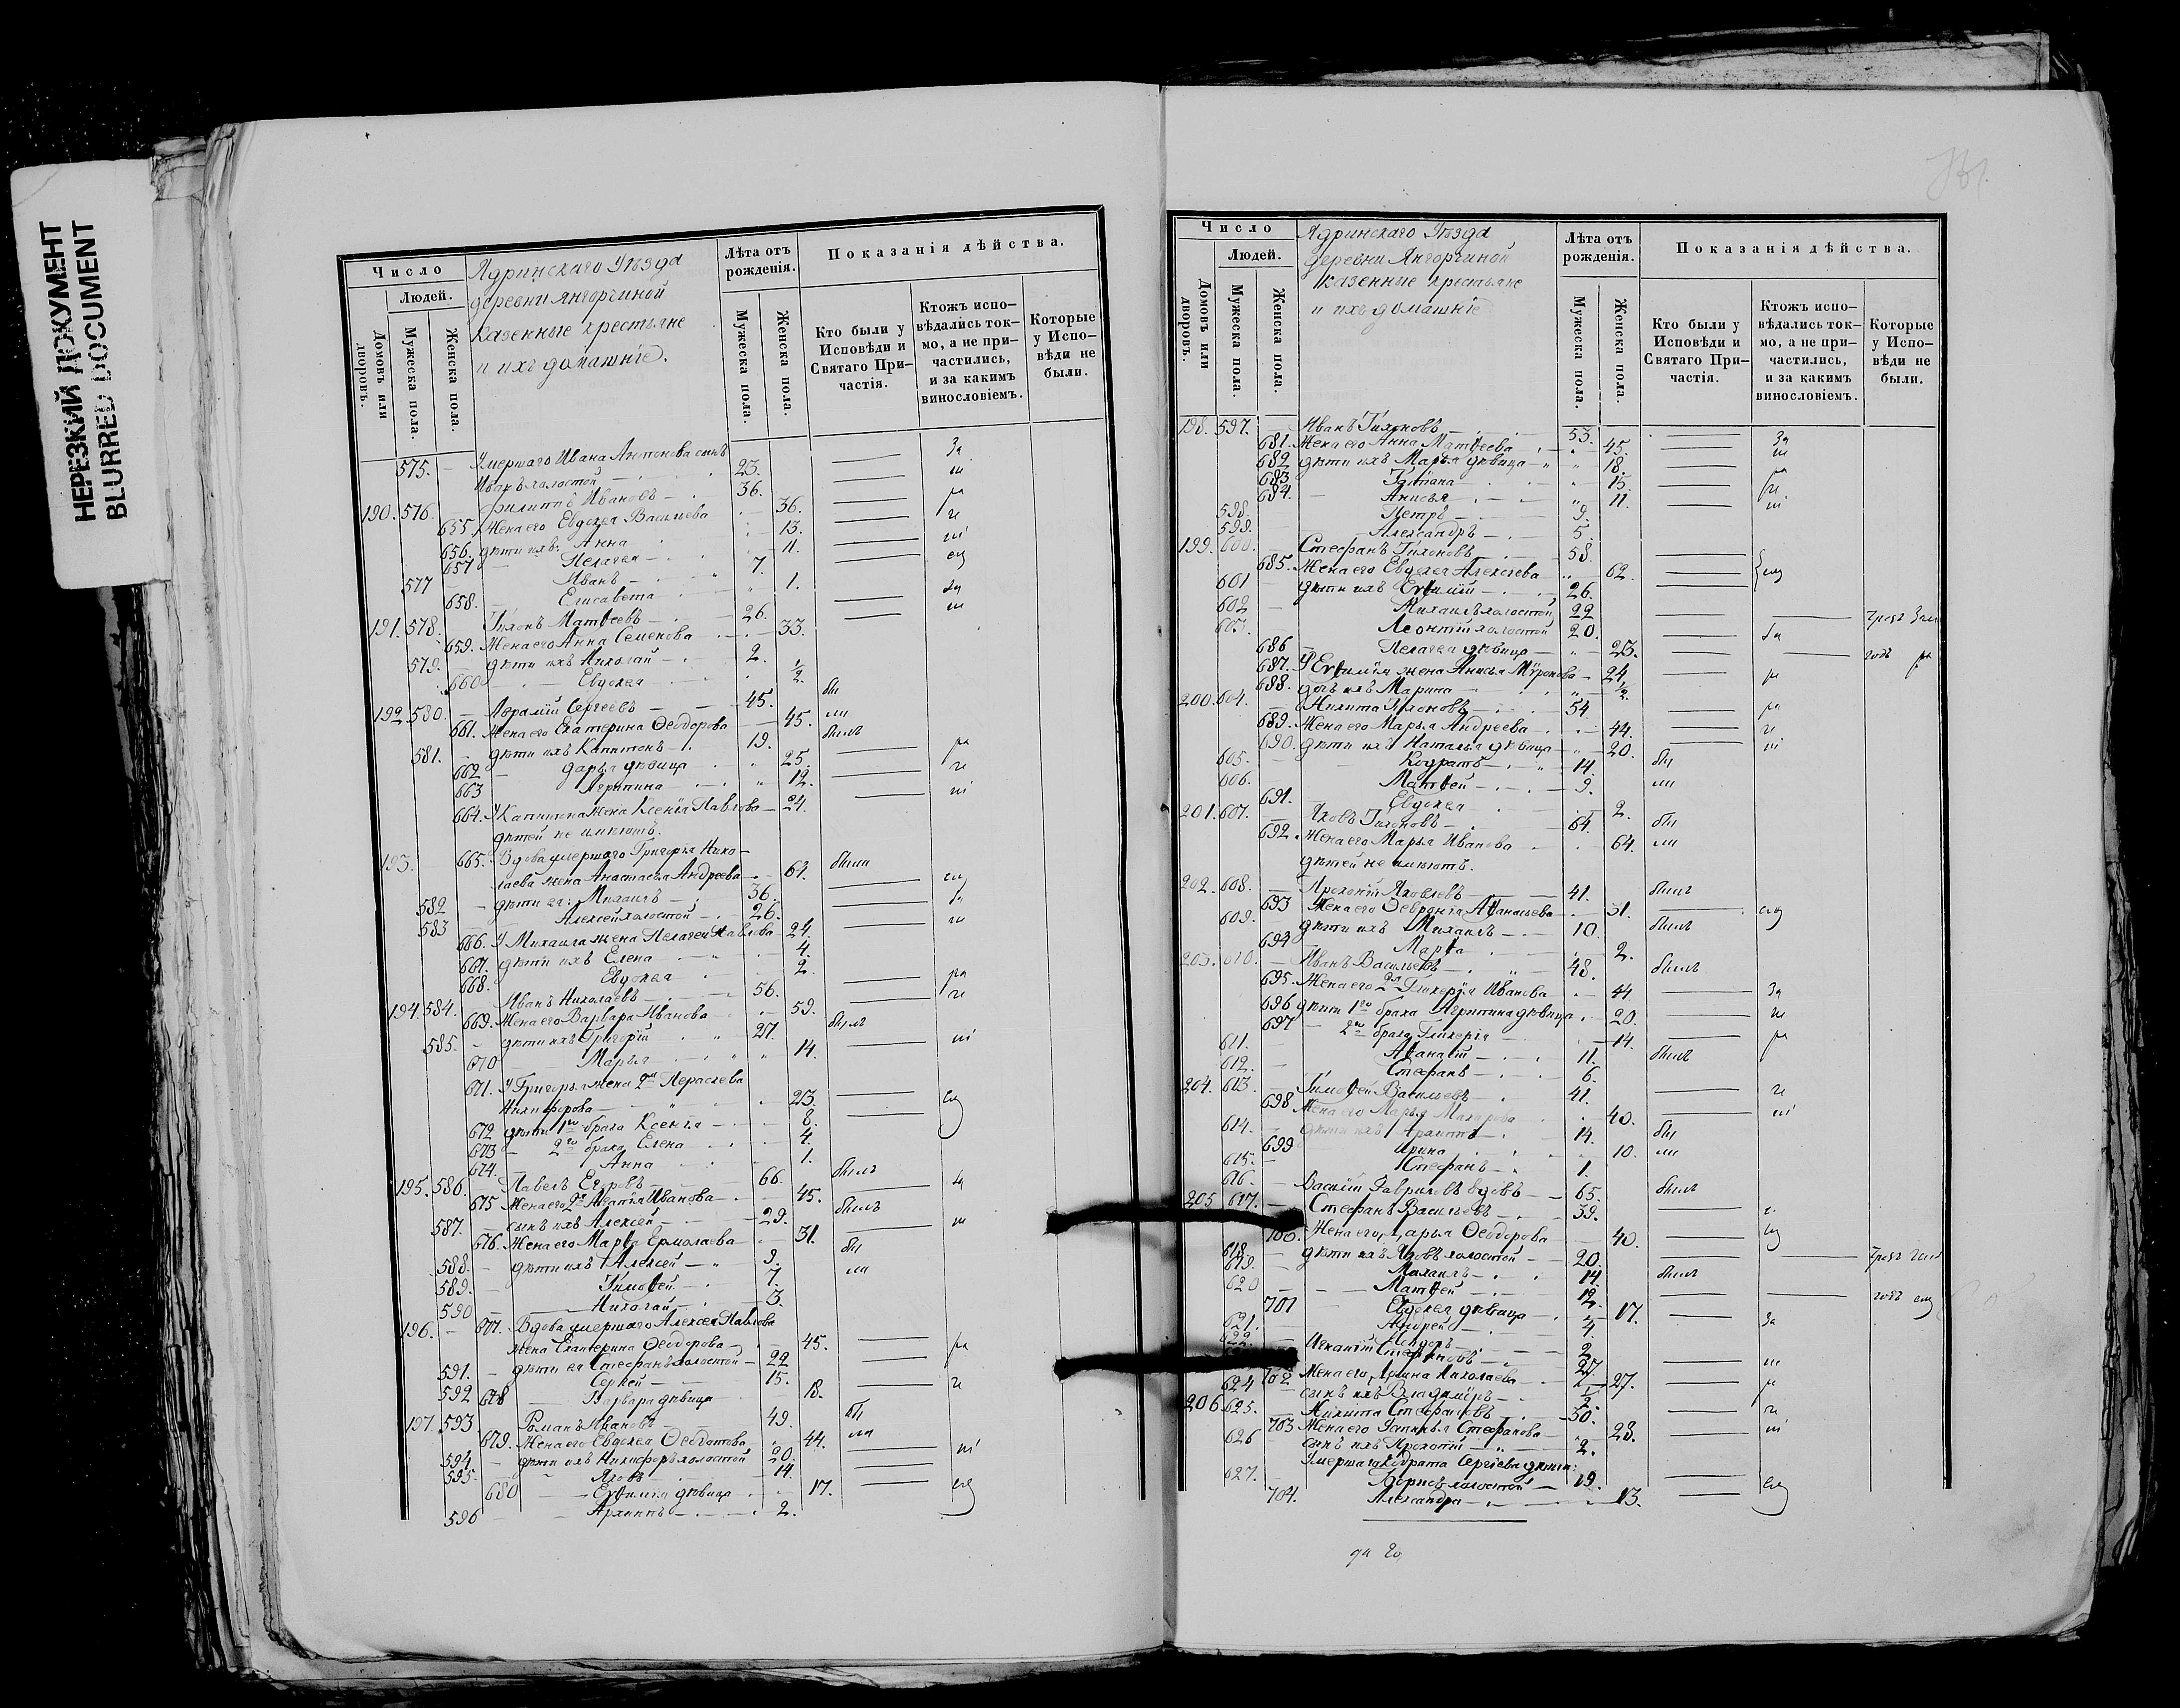 НЕРЕЗКИЙ ДОКУМЕНТ
BLURRED DOCUMENT
Число
Людей.
Домовъ или дворовъ.
Мужеска пола.
Женска пола.
Ядринскаго Уѣзда
деревни Янгорчиной
казенные крестьяне
и ихъ домашніе.
Лѣта отъ рожденія.
Мужеска пола.
Женска пола.
Показанія дѣйства.
Кто были у Исповѣди и Святаго Причастія.
Ктожъ испо-
вѣдались ток-
мо, а не при-
частились,
и за какимъ
винословіемъ.
Которые
у Испо-
вѣди не
были.
575. – Умершаго Ивана Антонова сынъ
Иванъ холостой 23.
190. 576. Филиппъ Ивановъ 36.
655. Жена его Евдокея Васильева 36.
656. дѣти ихъ: Анна 13.
657 Пелагея 11.
577 Иванъ 7.
658. Елисавета 1.
191. 578. Тихонъ Матвеевъ 26.
659. Жена его Анна Семенова 33.
579. дѣти ихъ Николай 2.
660 Евдокея 1/2.
192. 580. Авраамій Сергеевъ 45. бы
661. Жена его Екатерина Ѳеодорова 45. ли
581. дѣти ихъ Капитонъ 19. былъ
662 Дарья дѣвица 25.
663 Агрипина 12.
664. У Капитона жена Ксенія Павлова 24.
дѣтей не имѣютъ.
193. 665. Вдова умершаго Григорья Нико-
лаева жена Анастасья Андреева 61. были
582 дѣти ея: Михаилъ 36.
583 Алексей холостой 26.
666. У Михаила жена Пелагея Павлова 24.
667. дѣти ихъ Елена 4.
668. Евдокея 2.
194. 584. Иванъ Николаевъ 56.
669. Жена его Варвара Иванова 59.
585. дѣти ихъ Григорій 27. былъ
670 Марья 14.
671. У Григорья жена 2я Параскева
Никифорова 23.
672 дѣти 1го брака Ксенія 8.
673 2го брака Елена 4.
674. Анна 1.
195. 586. Павелъ Егоровъ 66. былъ
675 Жена его 2я Агафья Иванова 45.
587. сынъ ихъ Алексей 29. былъ
676. Жена его Марѳа Ермолаева 31.
588. дѣти ихъ Алексей 9. бы
589. Тимоѳей 7. ли
590 Николай 3.
196. 677. Вдова умершаго Алексея Павлова
жена Екатерина Ѳеодорова 45.
591. дѣти ея Стефанъ холостой 22
592 Сергей 15.
678 Варвара дѣвица 18.
197. 593 Романъ Ивановъ 49. бы
679. Жена его Евдокея Ѳедотова 44. ли
594 дѣти ихъ Никифоръ холостой 20.
595. Яковъ 14.
680 Евѳимія дѣвица 17.
596 Архиппъ 2.
Число
Людей.
Домовъ или дворовъ.
Мужеска пола.
Женска пола.
Ядринскаго Уѣзда
деревни Янгорчиной
казенные крестьяне
и ихъ домашніе
Лѣта отъ рожденія.
Мужеска пола.
Женска пола.
Показанія дѣйства.
Кто были у Исповѣди и Святаго Причастія.
Ктожъ испо-
вѣдались ток-
мо, а не при-
частились,
и за какимъ
винословіемъ.
Которые
у Испо-
вѣди не
были.
198. 597. Иванъ Тихоновъ 53.
681. Жена его Анна Матвеева 45.
682 дѣти ихъ Марья дѣвица 18.
683 Татіана 15.
684. Анисья 11.
598. Петръ 9.
599. Александръ 5.
199. 600. Стефанъ Тихоновъ 58.
685. Жена его Евдокея Алексеева 62.
601 дѣти ихъ Евѳимій 26.
602 Михаилъ холостой 22
603. Леонтій холостой 20.
686 Пелагея дѣвица 23.
687. У Евѳимія жена Анисья Миронова 24
688. дочь ихъ Марина 1/2.
200. 604. Никита Тихоновъ 54.
689. Жена его Марья Андреева 44.
690. дѣти ихъ Наталья дѣвица 20.
605. Кодратъ 14. бы
606. Матвей 9. ли
691. Евдокея 2.
201. 607. Яковъ Тихоновъ 64. бы
692. Жена его Марья Иванова 64. ли
дѣтей не имѣютъ.
202. 608. Прокопій Яковлевъ 41. былъ
693 Жена его Ѳевронія Аѳанасьева 31.
609. дѣти ихъ Михаилъ 10. былъ
694 Марѳа 2.
203. 610. Иванъ Васильевъ 48. былъ
695. Жена его 2я Гликерія Иванова 44
696 дѣти 1го брака Агрипина дѣвица 20.
697 2го брака Гликерія 14.
611. Аѳанасій 11. былъ
612. Стефанъ 6.
204. 613. Тимоѳей Васильевъ 41.
698 Жена его Марья Макарова 40.
614. дѣти ихъ 14. бы
699 Ирина 10. ли
615. Стефанъ 1.
616. Василій Гавриловъ вдовъ 65. былъ
205 617. Стефанъ Васильевъ 39.
700. Жена его Дарья Ѳеодорова 40.
618 дѣти ихъ Яковъ холостой 20.
619. Михаилъ 14. былъ
620 Матвей 12.
701 Евдокея дѣвица 17.
621. Андрей 4.
622. 2.
Стефановъ 27.
702 Жена его Ирина Николаева 27.
624 сынъ ихъ Владиміръ 1/2
206 625. Никита Стефановъ 30.
703 Жена его Устинья Стефанова 28.
626 сынъ ихъ Прокопій 2.
Умершаго Кодрата Сергеева дѣти:
627. Борисъ холостой 19.
704. Александра 13.